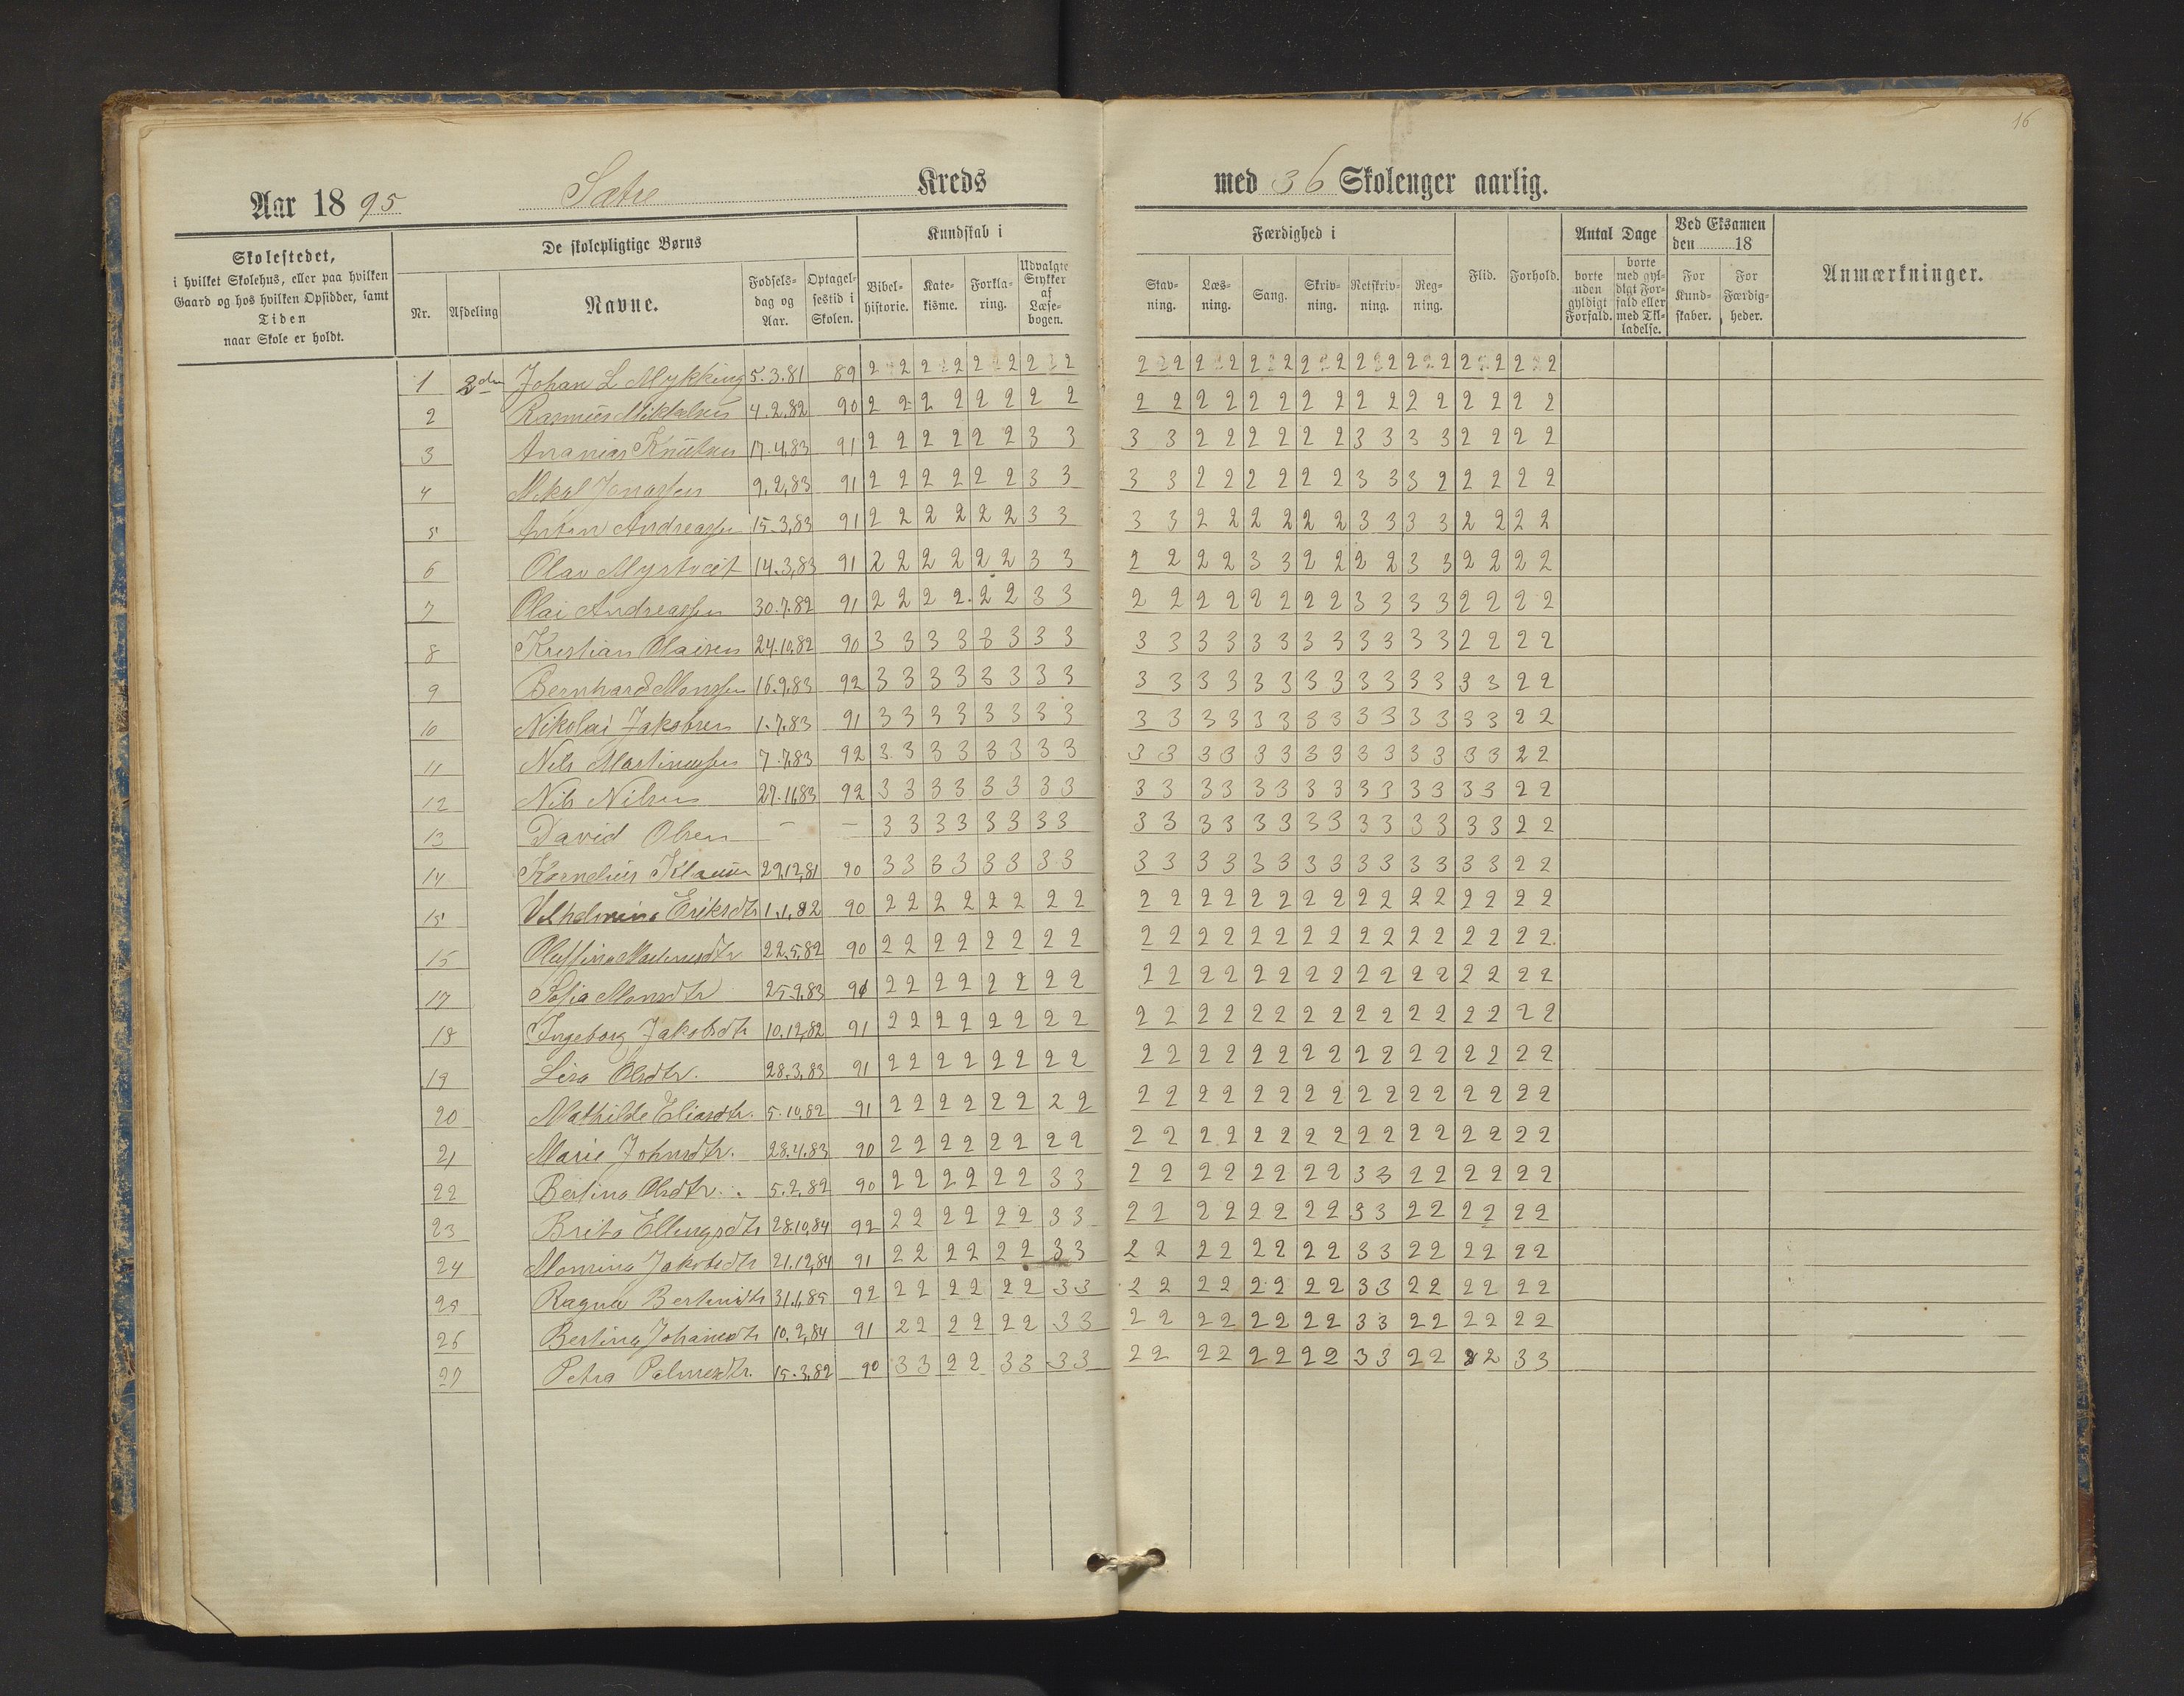 16
Aar 1895 Sætre Kreds med 36 Skolenger aarlig.
Skolestedet,
i hvilket Skolehus, eller paa hvilken
Gaard og hos hvilken Opsidder, samt
Tiden
naar Skole er holdt.
De skolepligtige Børns
Nr. Afdeling Navne. Fødsels-dag og Aar. Optagel-sestid i Skolen.
Kundskab i
Bibel-historie. Kate-kisme. Forkla-ring. Udvalgte Stykker af Læse-bogen.
Færdighed i
Stav-ning. Læs-ning. Sang. Skriv-ning. Retskriv-ning. Reg-ning. Flid. Forhold.
Antal Dage
borte uden gyldigt Forfald. borte med gyl-digt For-fald eller med Til-ladelse.
Ved Eksamen den 18
For Kund-skaber. For Færdig-heder.
Anmærkninger.
1 2den Johan L Mykking 5.3.81 89 2 2 2 2 2 2 2 2 2 2 2 2 2 2 2 2 2 2 2 2 2 2 2 2 2 2 2 2 2 2 2 2 2 2 2 2
2 Rasmus Mikkelsen 4.2.82 90 2 2 2 2 2 2 2 2 2 2 2 2 2 2 2 2 2 2 2 2 2 2 2 2
3 Ananias Knutsen 17.4.83 91 2 2 2 2 2 2 3 3 3 3 2 2 2 2 2 2 3 3 3 3 2 2 2 2
4 Mikal Jonassen 9.2.83 91 2 2 2 2 2 2 3 3 3 3 2 2 2 2 2 2 3 3 3 2 2 2 2 2
5 Anton Andreassen 15.3.83 91 2 2 2 2 2 2 3 3 3 3 2 2 2 2 2 2 3 3 3 3 2 2 2 2
6 Olav Myrtveit 14.3.83 91 2 2 2 2 2 2 3 3 2 2 2 2 3 3 2 2 2 2 3 3 2 2 2 2
7 Olai Andreassen 30.7.82 91 2 2 2 2 2 2 3 3 2 2 2 2 2 2 2 2 3 3 3 3 2 2 2 2
8 Kristian Olaisen 24.10.82 90 3 3 3 3 3 3 3 3 3 3 3 3 3 3 3 3 3 3 3 3 2 2 2 2
9 Bernhard Monssen 16.9.83 92 3 3 3 3 3 3 3 3 3 3 3 3 3 3 3 3 3 3 3 3 3 3 2 2
10 Nikolai Jakobsen 1.7.83 91 3 3 3 3 3 3 3 3 3 3 3 3 3 3 3 3 3 3 3 3 3 3 2 2
11 Nils Martinussen 7.7.83 92 3 3 3 3 3 3 3 3 3 3 3 3 3 3 3 3 3 3 3 3 3 3 2 2
12 Nils Nilsen 27.11.83 92 3 3 3 3 3 3 3 3 3 3 3 3 3 3 3 3 3 3 3 3 3 3 2 2
13 David Olsen — — 3 3 3 3 3 3 3 3 3 3 3 3 3 3 3 3 3 3 3 3 3 3 2 2
14 Kornelius 29.12.81 90 3 3 3 3 3 3 3 3 3 3 3 3 3 3 3 3 3 3 3 3 3 3 2 2
15 Vilhelmina Eriksdtr 1.1.82 90 2 2 2 2 2 2 2 2 2 2 2 2 2 2 2 2 2 2 2 2 2 2 2 2
16 22.5.82 90 2 2 2 2 2 2 2 2 2 2 2 2 2 2 2 2 2 2 2 2 2 2 2 2
17 Sofia Monsdtr 25.9.83 91 2 2 2 2 2 2 2 2 2 2 2 2 2 2 2 2 2 2 2 2 2 2 2 2
18 Ingeborg Jakobsdtr 10.12.82 91 2 2 2 2 2 2 2 2 2 2 2 2 2 2 2 2 2 2 2 2 2 2 2 2
19 Lisa Olsdtr. 28.3.83 91 2 2 2 2 2 2 2 2 2 2 2 2 2 2 2 2 2 2 2 2 2 2 2 2
20 Mathilde Eliasdtr. 5.10.82 91 2 2 2 2 2 2 2 2 2 2 2 2 2 2 2 2 2 2 2 2 2 2 2 2
21 Marie Johnsdtr. 28.4.83 90 2 2 2 2 2 2 2 2 2 2 2 2 2 2 2 2 2 2 2 2 2 2 2 2
22 Bertina Olsdtr. 5.2.82 90 2 2 2 2 2 2 3 3 2 2 2 2 2 2 2 2 3 3 2 2 2 2 2 2
23 Brita Ellingsdtr 28.10.84 92 2 2 2 2 2 2 3 3 2 2 2 2 2 2 2 2 3 3 2 2 2 2 2 2
24 Monsina Jakobsdtr 21.12.84 91 2 2 2 2 2 2 3 3 2 2 2 2 2 2 2 2 3 3 2 2 2 2 2 2
25 Ragna 31.1.85 92 2 2 2 2 2 2 3 3 2 2 2 2 2 2 2 2 3 3 2 2 2 2 2 2
26 Bertina Johansdtr 10.2.84 91 2 2 2 2 2 2 3 3 2 2 2 2 2 2 2 2 3 3 2 2 2 2 2 2
27 Petra 15.3.82 90 3 3 2 2 3 3 3 3 2 2 2 2 2 2 2 2 3 3 2 2 2 2 3 3